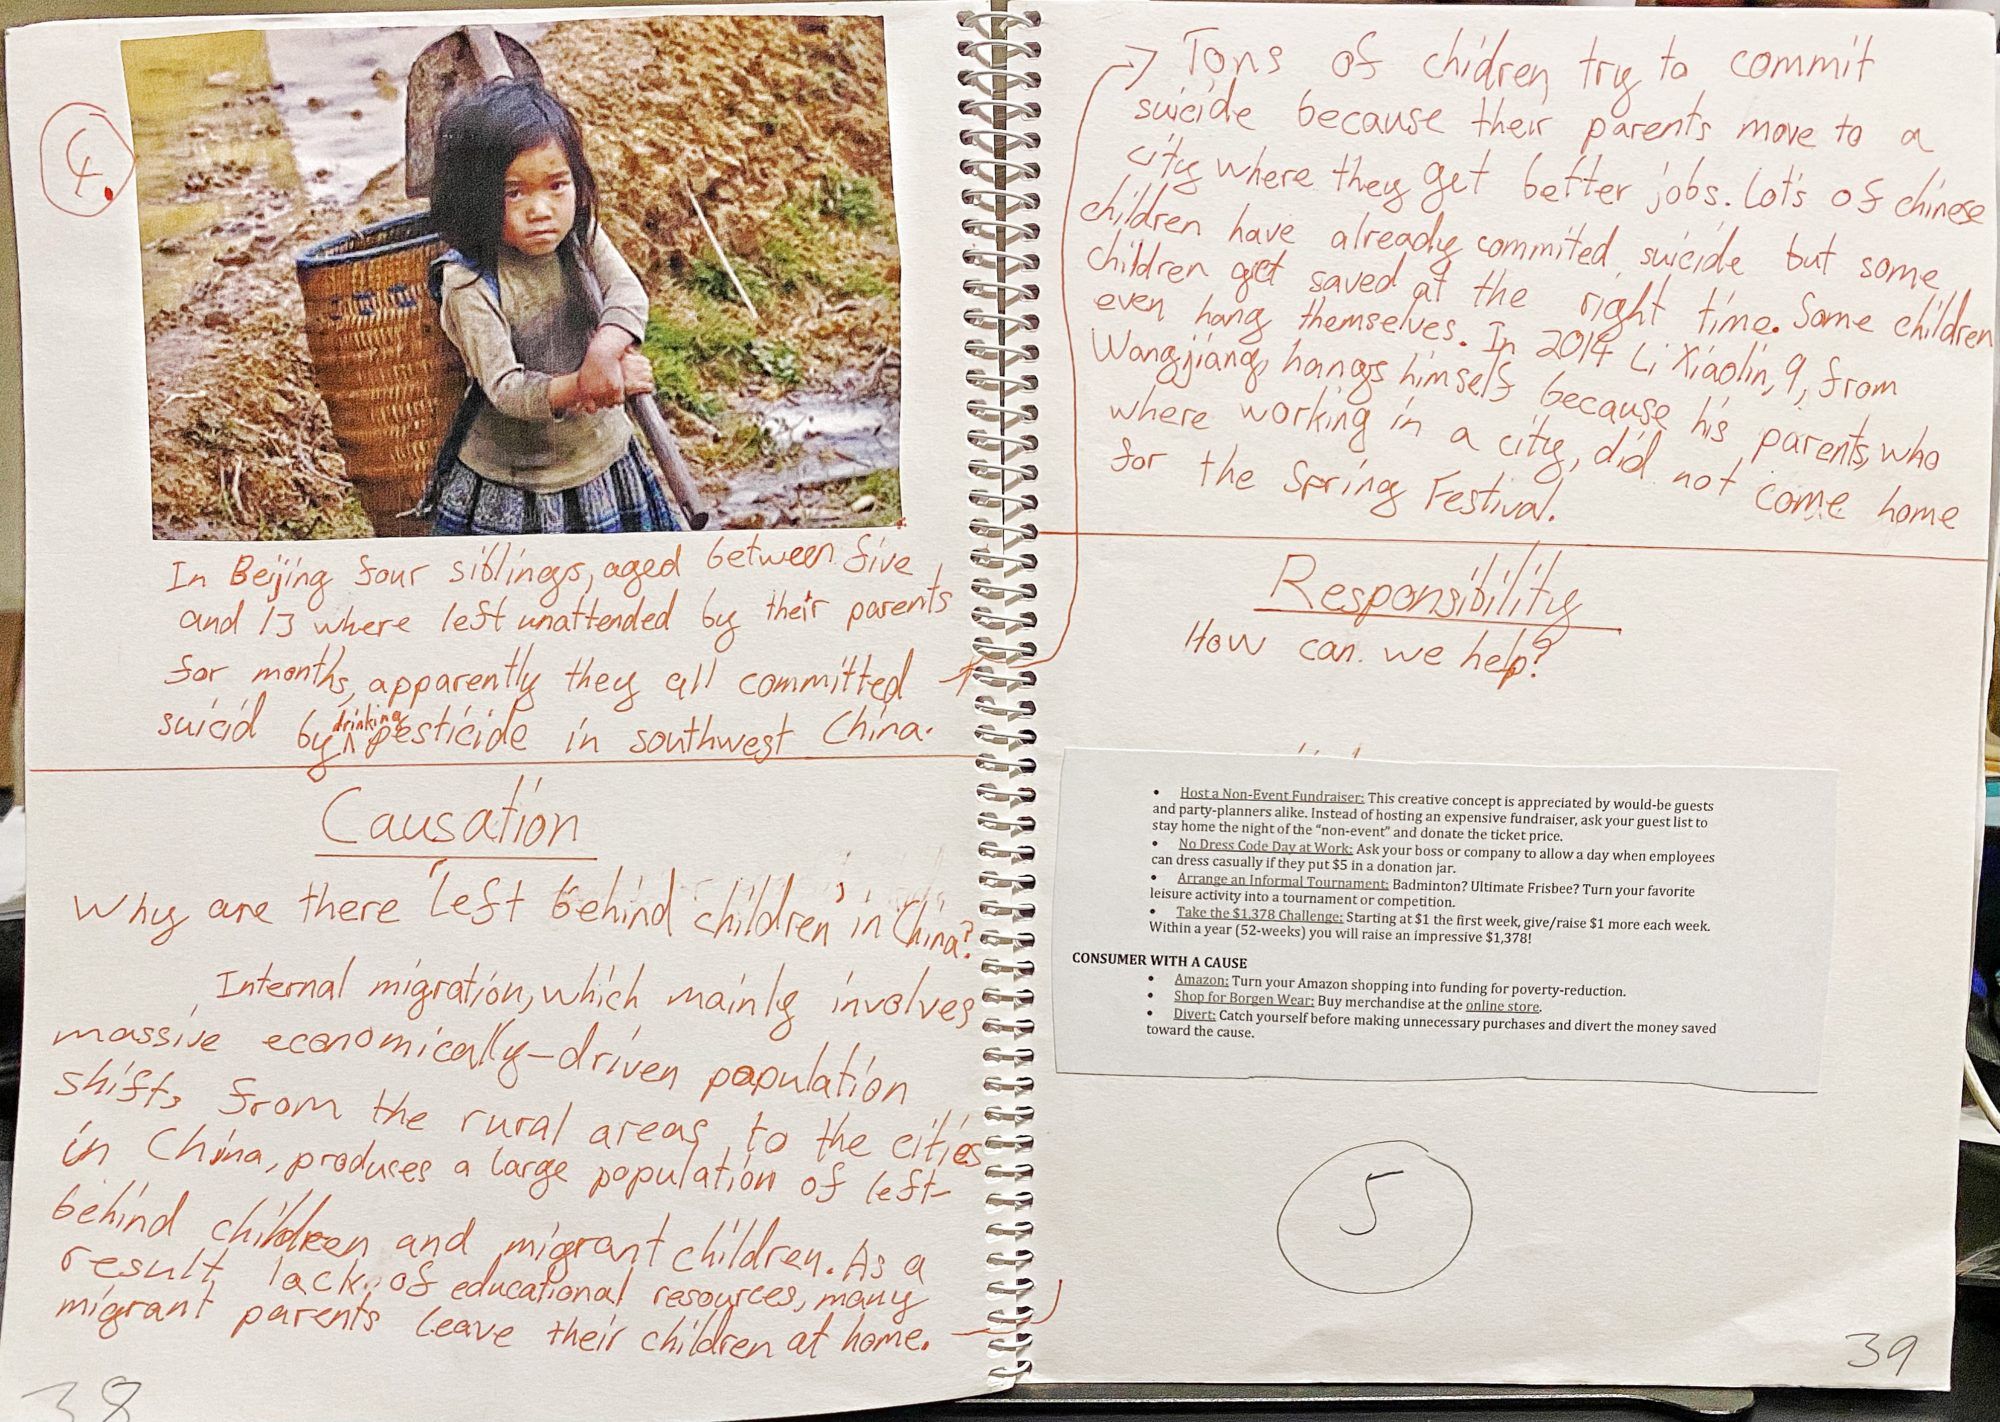 4.
In Beijing four siblings, aged between five
and 13 where left unattended by their parents
for months, apparently they all committed
suicid by drinking pesticide in southwest China.
Causation
Why are there 'left behind children' in China?
Internal migration, which mainly involves
massive economically-driven population
shifts from the rural areas to the cities
in China, produces a large population of left-
behind children and migrant children. As a
result lack of educational resources, many
migrant parents leave their children at home.
38
Tons of chidren try to commit
suicide because their parents move to a
city where they get better jobs. Lots of chinese
children have already commited suicide but some
children get saved at the right time. Some children
even hang themselves. In 2014 Li Xiaolin, 9, from
Wangjiang, hangs himself because his parents, who
where working in a city, did not come home
for the Spring Festival.
Responsibility
How can we help?
• Host a Non-Event Fundraiser: This creative concept is appreciated by would-be guests
and party-planners alike. Instead of hosting an expensive fundraiser, ask your guest list to
stay home the night of the “non-event” and donate the ticket price.
• No Dress Code Day at Work: Ask your boss or company to allow a day when employees
can dress casually if they put $5 in a donation jar.
• Arrange an Informal Tournament: Badminton? Ultimate Frisbee? Turn your favorite
leisure activity into a tournament or competition.
• Take the $1,378 Challenge: Starting at $1 the first week, give/raise $1 more each week.
Within a year (52-weeks) you will raise an impressive $1,378!
CONSUMER WITH A CAUSE
• Amazon: Turn your Amazon shopping into funding for poverty-reduction.
• Shop for Borgen Wear: Buy merchandise at the online store.
• Divert: Catch yourself before making unnecessary purchases and divert the money saved
toward the cause.
5
39